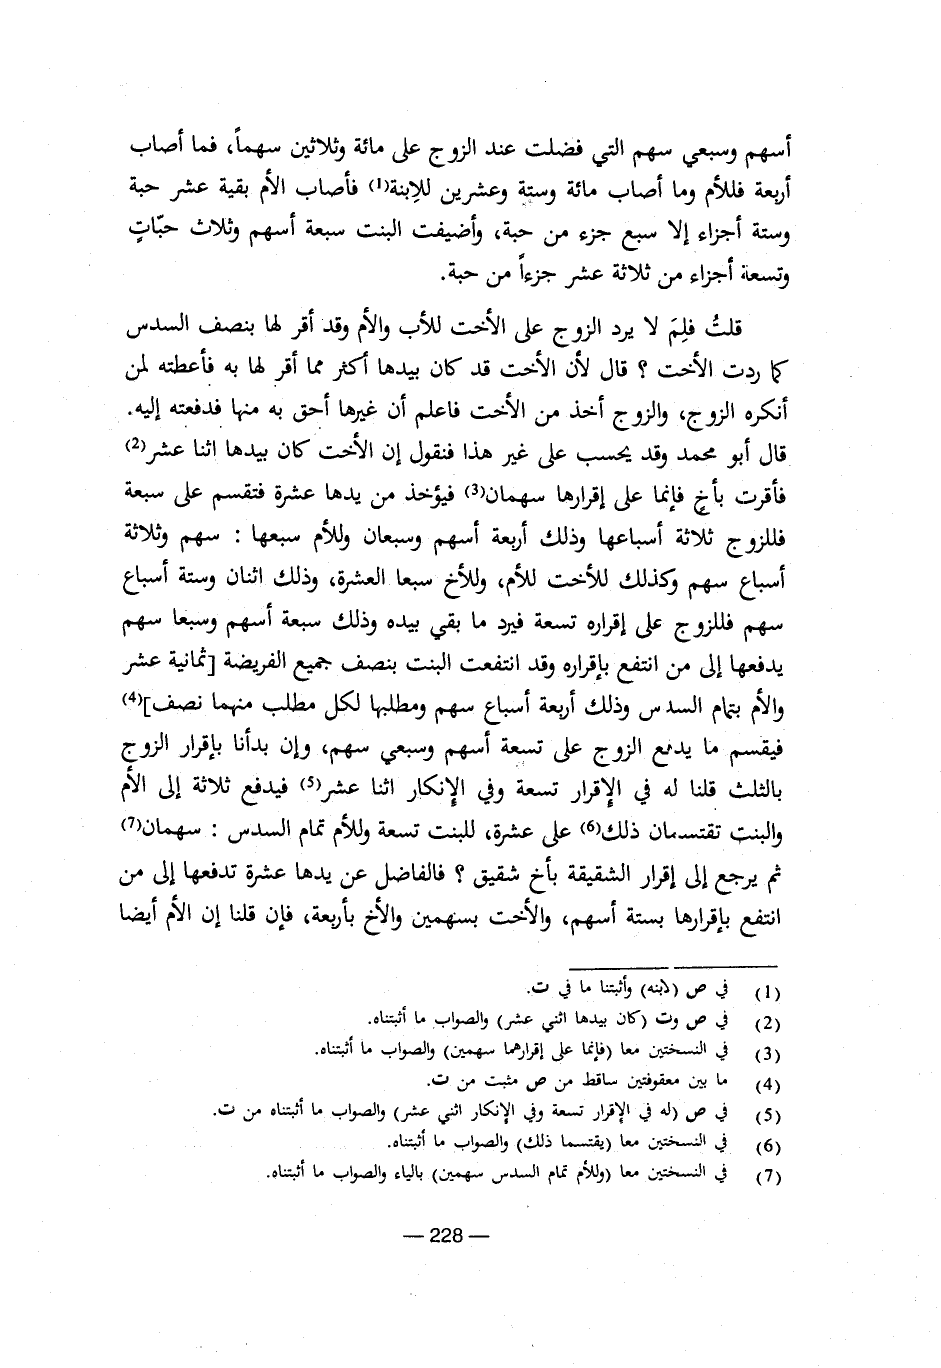 أسهم وسبعي سهم التي فضلت عند الزوج على مائة وثلاثين سهماً، فما أصاب
أربعة فللأم وما أصاب مائة وستة وعشرين للإبنة(1) فأصاب الأم بقية عشر حبة
وستة أجزاء إلا سبع جزء من حبة، وأضيفت البنت سبعة أسهم وثلاث حبّاتٍ
وتسعة أجزاء من ثلاثة عشر جزءاً من حبة.
قلتُ فلِمَ لا يرد الزوج على الأخت للأب والأم وقد أقر لها بنصف السدس
كما ردت الأخت ؟ قال لأن الأخت قد كان بيدها أكثر مما أقر لها به فأعطته لمن
أنكره الزوج، والزوج أخذ من الأخت فاعلم أن غيرها أحق به منها فدفعته إليه.
قال أبو محمد وقد يحسب على غير هذا فنقول إن الأخت كان بيدها اثنا عشر(2)
فأقرت بأخٍ فإنما على إقرارها سهمان(3) فيؤخذ من يدها عشرة فتقسم على سبعة
فللزوج ثلاثة أسباعها وذلك أربعة أسهم وسبعان وللأم سبعها : سهم وثلاثة
أسباع سهم وكذلك للأخت للأم، وللأخ سبعا العشرة، وذلك اثنان وستة أسباع
سهم فللزوج على إقراره تسعة فيرد ما بقي بيده وذلك سبعة أسهم وسبعا سهم
يدفعها إلى من انتفع بإقراره وقد انتفعت البنت بنصف جميع الفريضة [ثمانية عشر
والأم بتمام السدس وذلك أربعة أسباع سهم ومطلبها لكل مطلب منهما نصف](4)
فيقسم ما يدفع الزوج على تسعة أسهم وسبعي سهم، وإن بدأنا بإقرار الزوج
بالثلث قلنا له في الإقرار تسعة وفي الإنكار اثنا عشر(5) فيدفع ثلاثة إلى الأم
والبنت تقتسمان ذلك(6) على عشرة، للبنت تسعة وللأم تمام السدس : سهمان(7)
ثم يرجع إلى إقرار الشقيقة بأخ شقيق ؟ فالفاضل عن يدها عشرة تدفعها إلى من
انتفع بإقرارها بستة أسهم، والأخت بسهمين والأخ بأربعة، فإن قلنا إن الأم أيضا
(1) في ص (لابنه) وأثبتنا ما في ت.
(2) في ص وت (كان بيدها اثني عشر) والصواب ما أثبتناه.
(3) في النسختين معا (فإنما على إقرارهما سهمين) والصواب ما أثبتناه.
(4) ما بين معقوفتين ساقط من ص مثبت من ت.
(5) في ص (له في الإقرار تسعة وفي الإنكار اثني عشر) والصواب ما أثبتناه من ت.
(6) في النسختين معا (يقتسما ذلك) والصواب ما أثبتناه.
(7) في النسختين معا (وللأم تمام السدس سهمين) بالياء والصواب ما أثبتناه.
— 228 —